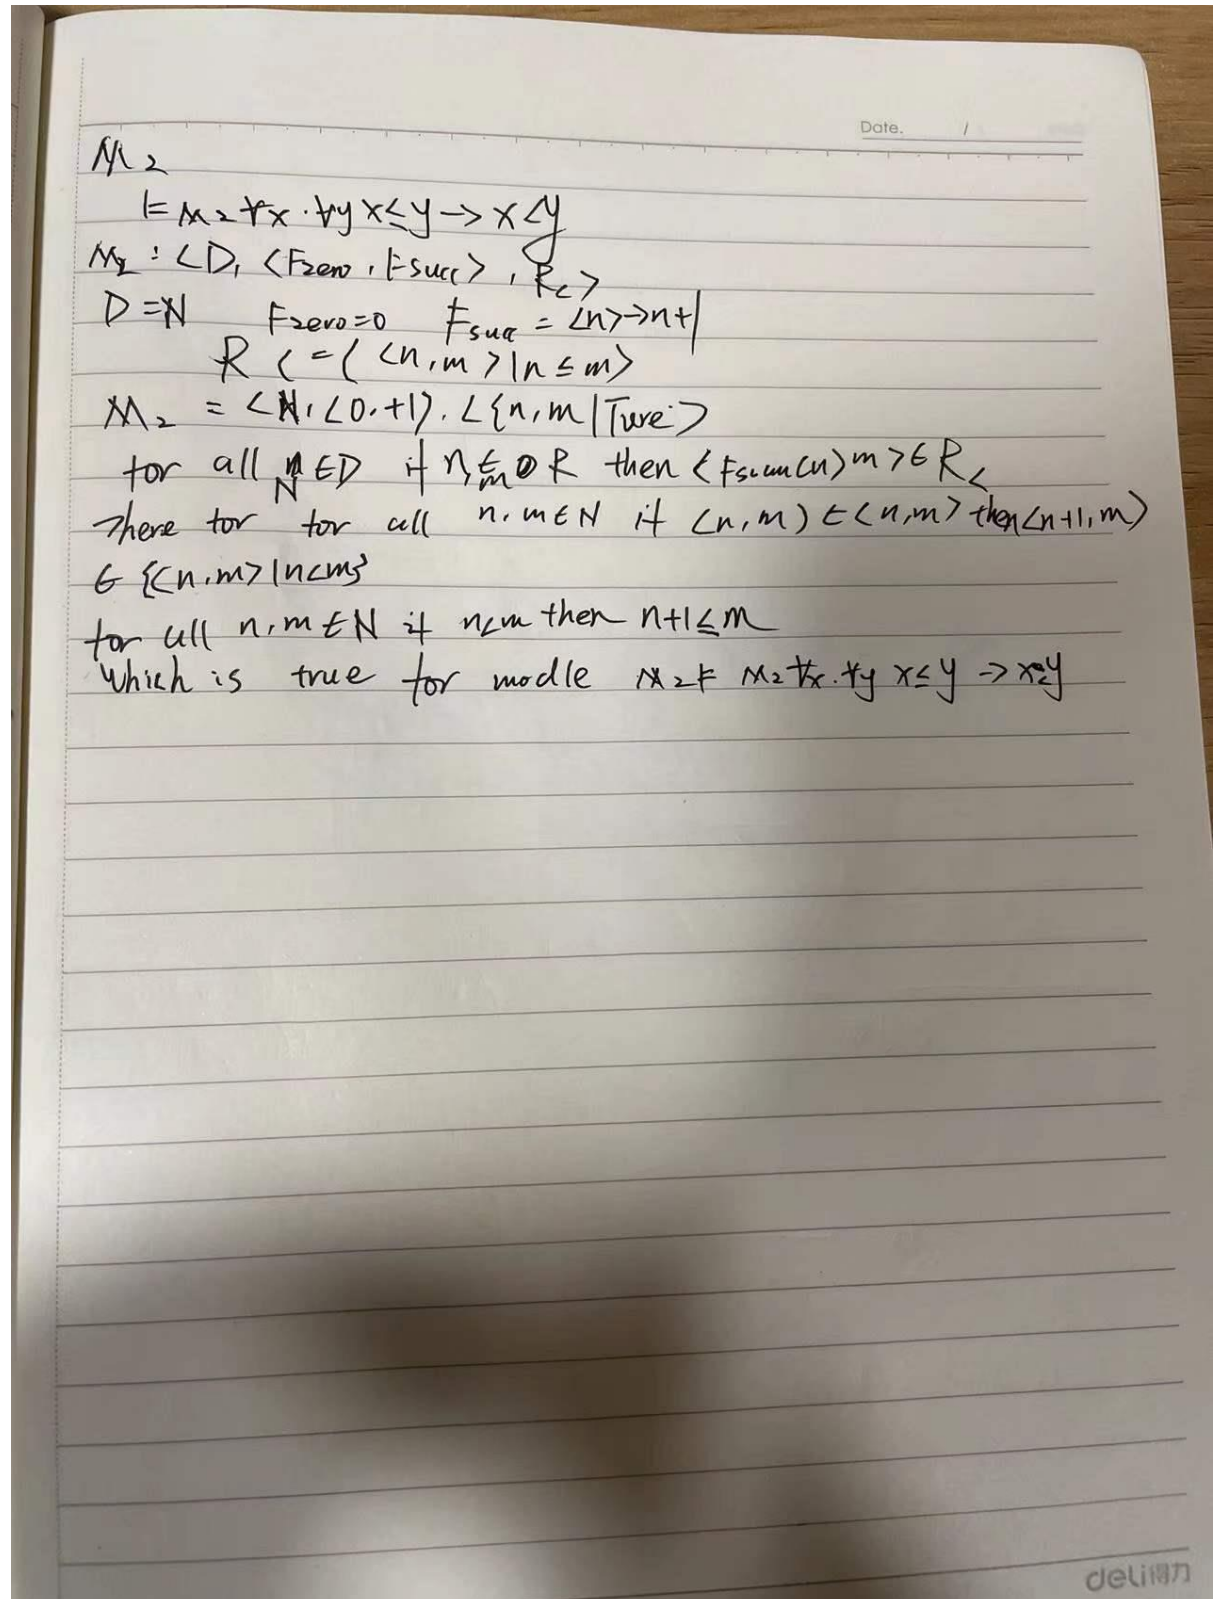 Date. /
M2
⊨ M2 ∀x·∀y x≤y → x<y
M2 : <D, <Fzero, Fsucc>, R<>
D=N Fzero=0 Fsucc = <n>→n+1
R < = ( <n,m>|n≤m>
M2 = <N, <0,+1>, <{n,m|Ture>
for all ∈D if R then m>∈R<
There for for all n,m∈N if <n,m) ∈<n,m> then<n+1,m>
∈ {<n,m>|n<m}
for all n,m∈N if n<m then n+1≤m
Which is true for modle M2⊨ M2 ∀x·∀y x≤y →
deli得力